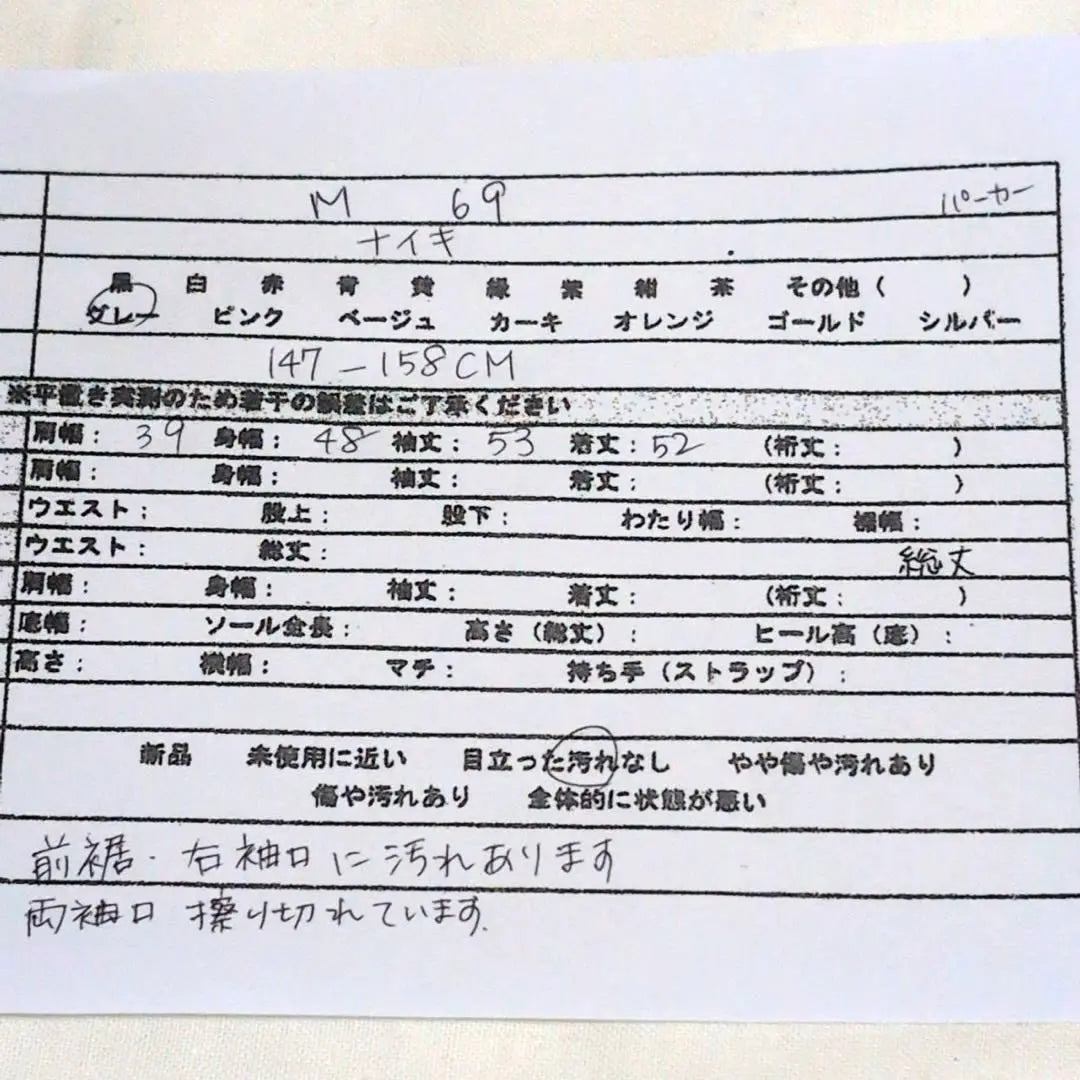 M 69 パーカー
ナイキ
黒 白 赤 青 黄 緑 紫 紺 茶 その他（ ）
グレー ピンク ベージュ カーキ オレンジ ゴールド シルバー
147-158CM
※平置き実測のため若干の誤差はご了承ください
肩幅：39 身幅：48 袖丈：53 着丈：52 (裄丈： )
肩幅： 身幅： 袖丈： 着丈： (裄丈： )
ウエスト： 股上： 股下： わたり幅： 裾幅：
ウエスト： 総丈： 総丈
肩幅： 身幅： 袖丈： 着丈： (裄丈： )
底幅： ソール全長： 高さ（総丈）： ヒール高（底）：
高さ： 横幅： マチ： 持ち手（ストラップ）：
新品 未使用に近い 目立った汚れなし やや傷や汚れあり
傷や汚れあり 全体的に状態が悪い
前裾・右袖口に汚れあります
両袖口 擦り切れています.